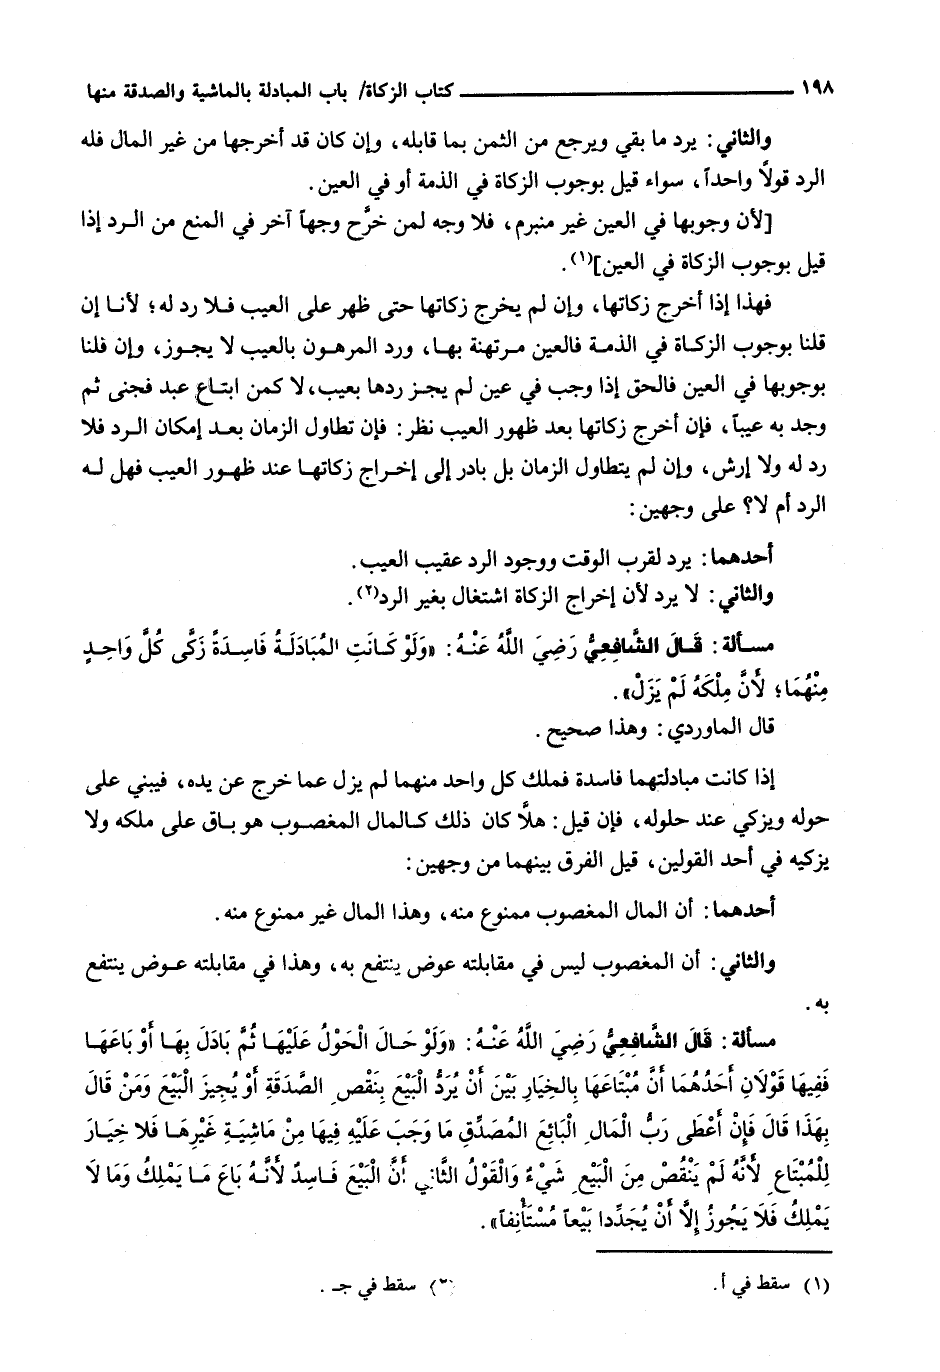 ١٩٨ ــــــــــــ كتاب الزكاة/ باب المبادلة بالماشية والصدقة منها
والثاني: يرد ما بقي ويرجع من الثمن بما قابله، وإن كان قد أخرجها من غير المال فله
الرد قولاً واحداً، سواء قيل بوجوب الزكاة في الذمة أو في العين.
[لأن وجوبها في العين غير منبرم، فلا وجه لمن خرَّج وجهاً آخر في المنع من الرد إذا
قيل بوجوب الزكاة في العين](١).
فهذا إذا أخرج زكاتها، وإن لم يخرج زكاتها حتى ظهر على العيب فلا رد له؛ لأنا إن
قلنا بوجوب الزكاة في الذمة فالعين مرتهنة بها، ورد المرهون بالعيب لا يجوز، وإن قلنا
بوجوبها في العين فالحق إذا وجب في عين لم يجز ردها بعيب، لا كمن ابتاع عبد فجنى ثم
وجد به عيباً، فإن أخرج زكاتها بعد ظهور العيب نظر: فإن تطاول الزمان بعد إمكان الرد فلا
رد له ولا إرش، وإن لم يتطاول الزمان بل بادر إلى إخراج زكاتها عند ظهور العيب فهل له
الرد أم لا؟ على وجهين:
أحدهما: يرد لقرب الوقت ووجود الرد عقيب العيب.
والثاني: لا يرد لأن إخراج الزكاة اشتغال بغير الرد(٢).
مسألة: قَالَ الشَّافِعِيُّ رَضِيَ اللَّهُ عَنْهُ: «وَلَوْ كَانَتِ المُبَادَلَةُ فَاسِدَةً زَكَّى كُلَّ وَاحِدٍ
مِنْهُمَا؛ لأَنَّ مِلْكَهُ لَمْ يَزَلْ».
قال الماوردي: وهذا صحيح.
إذا كانت مبادلتهما فاسدة فملك كل واحد منهما لم يزل عما خرج عن يده، فيبني على
حوله ويزكي عند حلوله، فإن قيل: هلَّا كان ذلك كالمال المغصوب هو باق على ملكه ولا
يزكيه في أحد القولين، قيل الفرق بينهما من وجهين:
أحدهما: أن المال المغصوب ممنوع منه، وهذا المال غير ممنوع منه.
والثاني: أن المغصوب ليس في مقابلته عوض ينتفع به، وهذا في مقابلته عوض ينتفع
به.
مسألة: قَالَ الشَّافِعِيُّ رَضِيَ اللَّهُ عَنْهُ: «وَلَوْ حَالَ الْحَوْلُ عَلَيْهَا ثُمَّ بَادَلَ بِهَا أَوْ بَاعَهَا
فَفِيهَا قَوْلَانِ أَحَدُهُمَا أَنَّ مُبْتَاعَهَا بِالخِيَارِ بَيْنَ أَنْ يُرَدُّ الْبَيْعَ بِنَقْصِ الصَّدَقَةِ أَوْ يُجِيزَ الْبَيْعَ وَمَنْ قَالَ
بِهَذَا قَالَ فَإِنْ أَعْطَى رَبُّ المَالِ الْبَائِعَ المُصَدِّقَ مَا وَجَبَ عَلَيْهِ فِيهَا مِنْ مَاشِيَةٍ غَيْرِهَا فَلا خِيَارَ
لِلْمُبْتَاعِ لأَنَّهُ لَمْ يَنْقُصْ مِنَ الْبَيْعِ شَيْءٌ وَالْقَوْلُ الثَّانِي أَنَّ الْبَيْعَ فَاسِدٌ لأَنَّهُ بَاعَ مَا يَمْلِكُ وَمَا لَا
يَمْلِكُ فَلَا يَجُوزُ إِلَّا أَنْ يُجَدِّدا بَيْعاً مُسْتَأْنِفاً».
(١) سقط في أ. (٢) سقط في جـ.